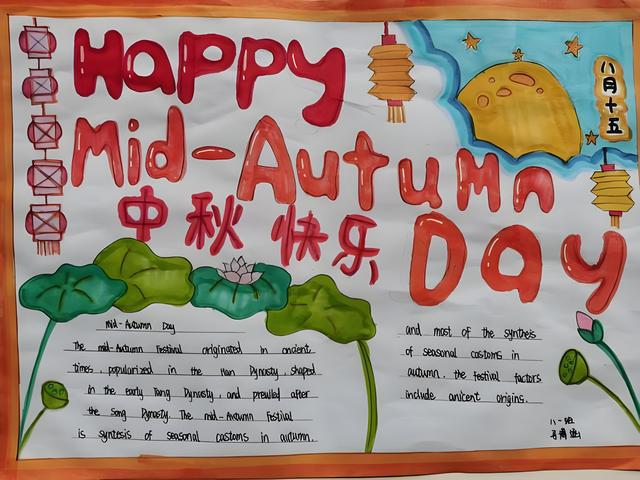 Happy
Mid-Autumn
中秋快乐
Day
八月十五
mid-Autumn Day
The mid-Autumn Festival originated in ancient
times. popularized in the Han Dynasty. shaped
in the early Tang Dynasty. and prevailed after
the Song Dynasty. The mid-Autumn Festival
is syntesis of seasonal castoms in autumn.
and most of the synthesis
of seasonal castoms in
autumn. the festival factors
include anicent origins.
八一班